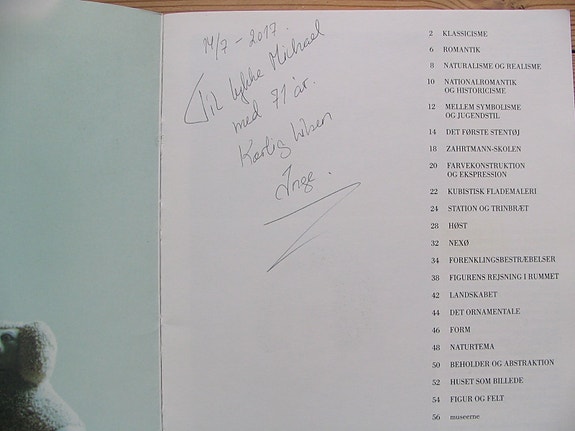 14/7 - 2017.
Til lykke Michael
med 71 år.
Kærlig hilsen
Inge.
2 KLASSICISME
6 ROMANTIK
8 NATURALISME OG REALISME
10 NATIONALROMANTIK
OG HISTORICISME
12 MELLEM SYMBOLISME
OG JUGENDSTIL
14 DET FØRSTE STENTØJ
18 ZAHRTMANN-SKOLEN
20 FARVEKONSTRUKTION
OG EKSPRESSION
22 KUBISTISK FLADEMALERI
24 STATION OG TRINBRÆT
28 HØST
32 NEXØ
34 FORENKLINGSBESTRÆBELSER
38 FIGURENS REJSNING I RUMMET
42 LANDSKABET
44 DET ORNAMENTALE
46 FORM
48 NATURTEMA
50 BEHOLDER OG ABSTRAKTION
52 HUSET SOM BILLEDE
54 FIGUR OG FELT
56 museerne